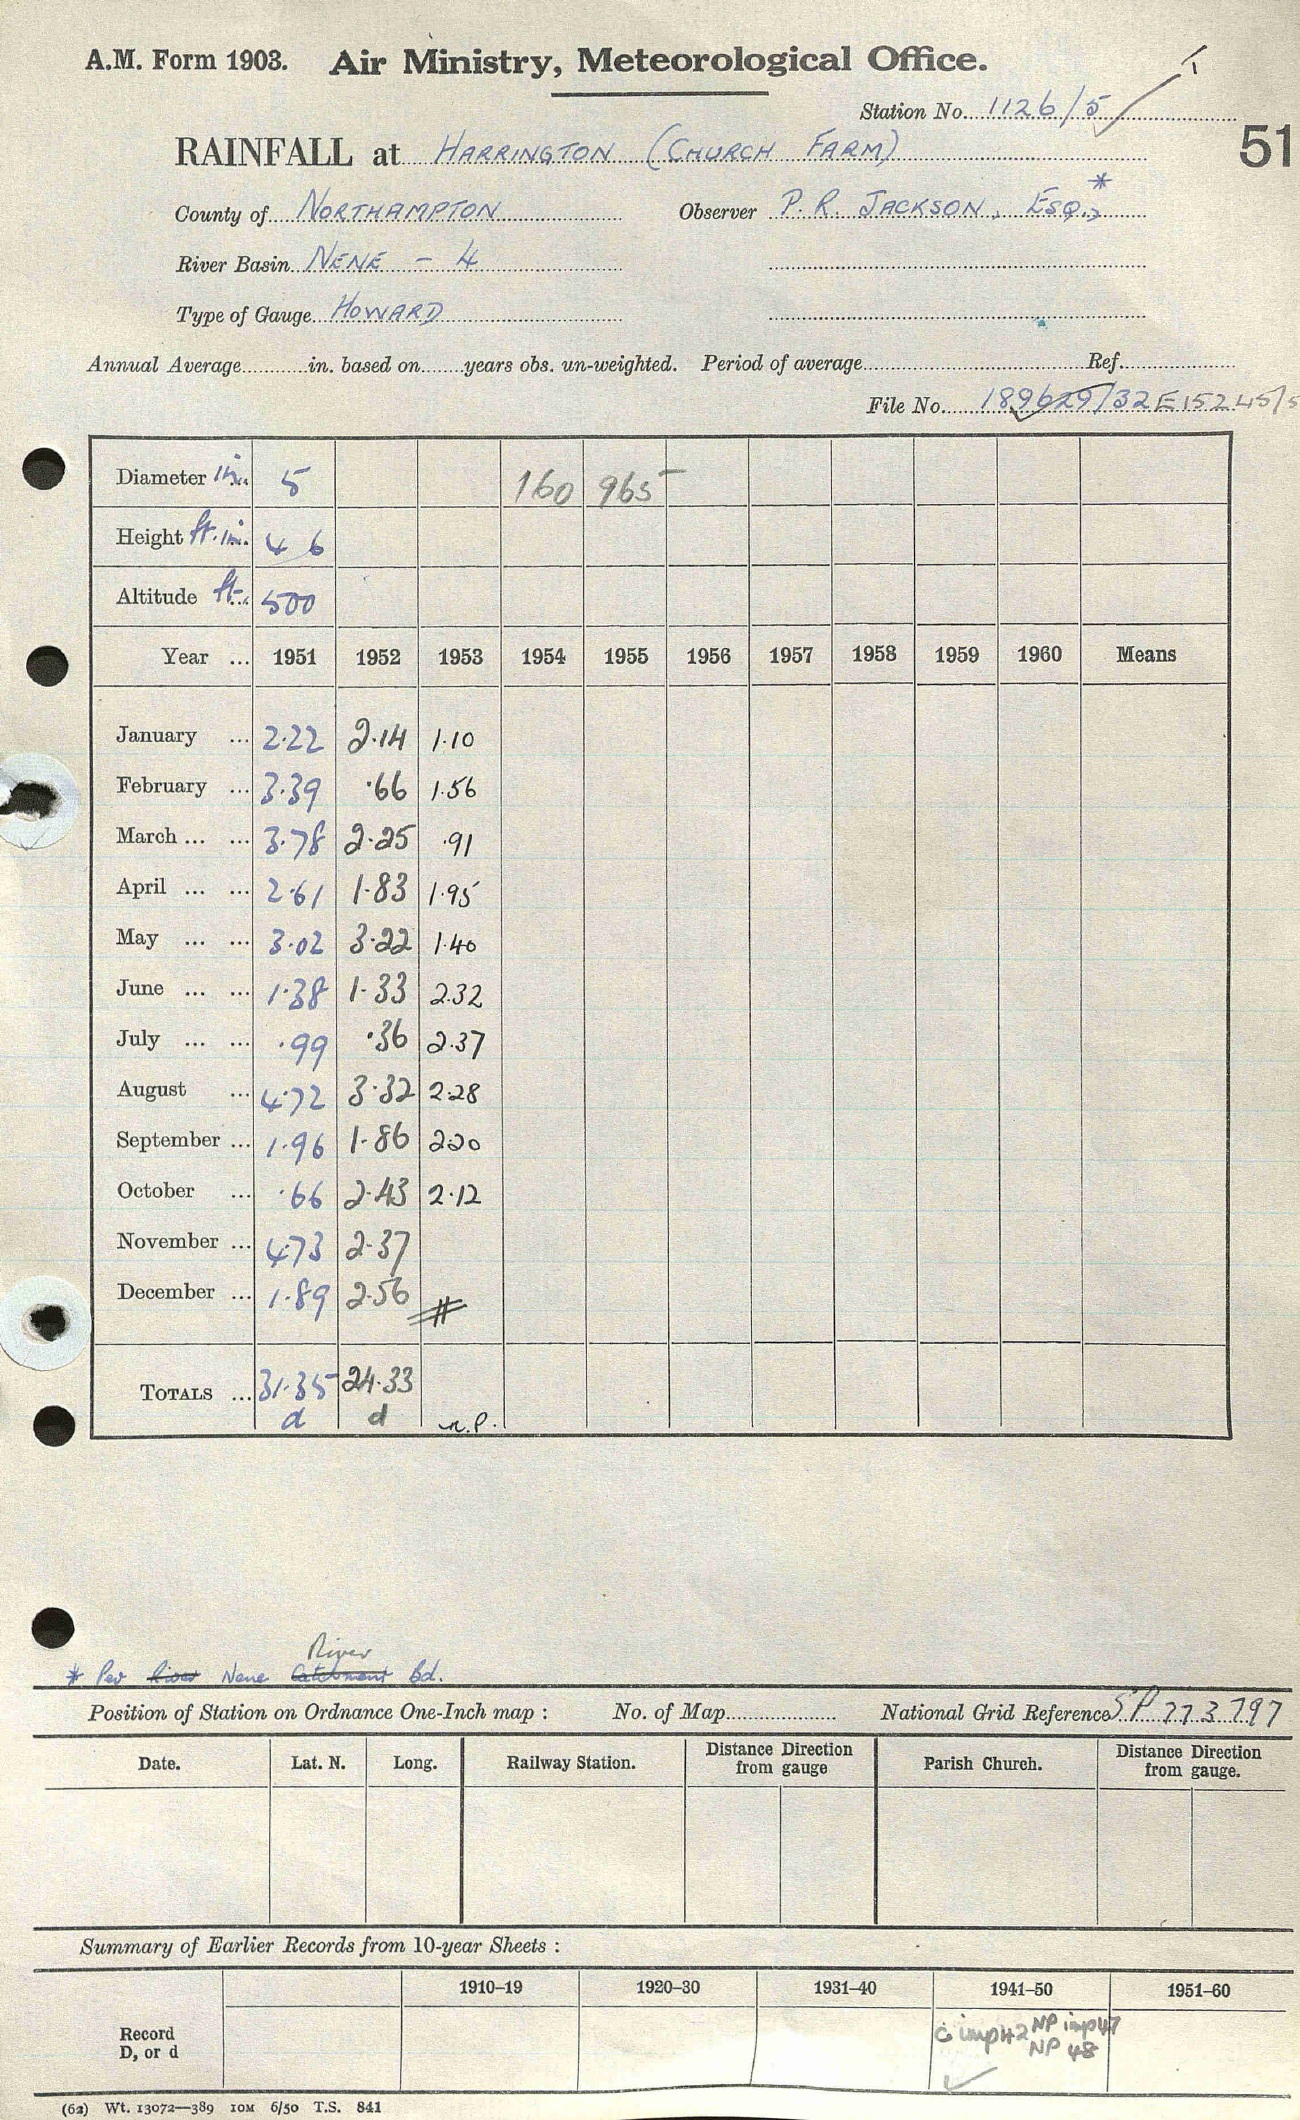 A.M. Form 1903. Air Ministry, Meteorological Office.
Station No. 1126/5
51
RAINFALL at HARRINGTON (CHURCH FARM)
County of NORTHAMPTON Observer P. R. JACKSON, ESQ., *
River Basin NENE - 4
Type of Gauge HOWARD
Annual Average in. based on years obs. un-weighted. Period of average Ref.
File No. 189629/32 E15245/5
Diameter in. 5 160 965
Height ft. in. 4 6
Altitude ft. 500
Year ... 1951 1952 1953 1954 1955 1956 1957 1958 1959 1960 Means
January ... 2.22 2.14 1.10
February ... 3.39 .66 1.56
March ... ... 3.78 2.25 .91
April ... ... 2.61 1.83 1.95
May ... ... 3.02 3.22 1.40
June ... ... 1.38 1.33 2.32
July ... ... .99 .36 2.37
August ... 4.72 3.32 2.28
September ... 1.96 1.86 2.20
October ... .66 2.43 2.12
November ... 4.73 2.37
December ... 1.89 2.56 #
TOTALS ... 31.35 24.33
d d n.p.
River
* Per River Nene Catchment Bd.
Position of Station on Ordnance One-Inch map : No. of Map National Grid Reference SP 773 797
Date. Lat. N. Long. Railway Station. Distance Direction from gauge Parish Church. Distance Direction from gauge.
Summary of Earlier Records from 10-year Sheets :
1910–19 1920–30 1931–40 1941–50 1951–60
Record D, or d imp42 NP imp47
NP 48
(62) Wt. 13072—389 10M 6/50 T.S. 841